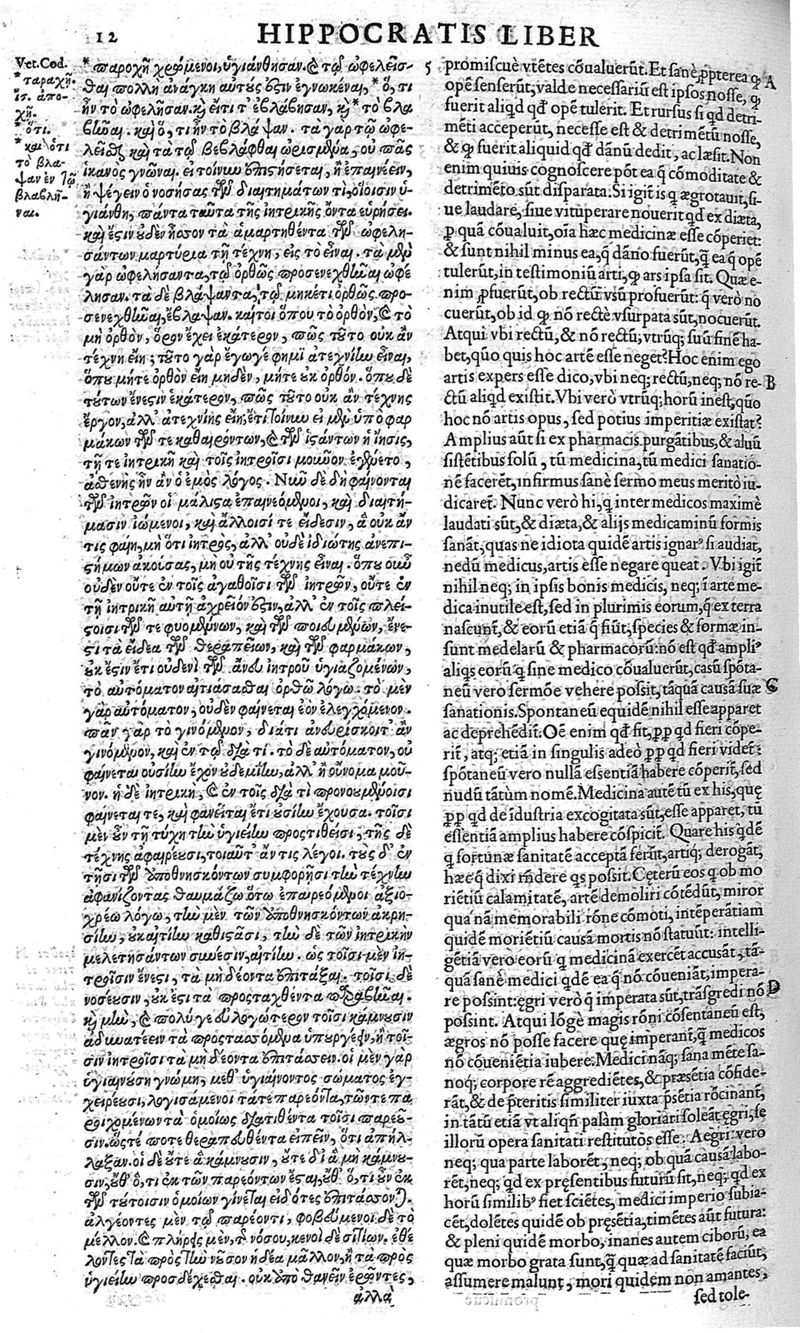 12
HIPPOCRATIS LIBER
Vet. Cod.
* ταραχῇ.
ἰσ. ἀπο-
χῇ.
* ὅτι.
* καὶ ὅτι
τὸ βλα-
ψαν ἐν τῷ
βλαβῆ-
ναι.
* παροχῇ χρεόμενοι, ὑγιάνθησαν. Ϲ τῷ ὠφελεῖσ-
θαι πολλὴ ἀνάγκη αὐτούς ἐστιν ἐγνωκέναι, * ὅ, τι
ἦν τὸ ὠφελῆσαν. καὶ εἴ τι τ' ἐβλάβησαν, καὶ * τὸ βλα
βῆναι. καὶ ὅ, τι ἦν τὸ βλάψαν. τὰ γὰρ τῷ ὠφε-
λεῖσθαι καὶ τὰ τῷ βεβλάφθαι ὡρισμένα, οὐ πᾶς
ἱκανὸς γνῶναι. εἰ τοίνυν ἐπιστήσεται, ἢ ἐπαινέειν,
ἢ ψέγειν ὁ νοσήσας τῶν διαιτημάτων τι, οἷσιν ὑ-
γιάνθη, πάντα ταῦτα τῆς ἰητρικῆς ὄντα εὑρήσει.
καὶ ἔστιν οὐδὲν ἧσσον τὰ ἁμαρτηθέντα τῶν ὠφελη-
σάντων μαρτύρια τῇ τέχνῃ, εἰς τὸ εἶναι. τὰ μὲν
γὰρ ὠφελήσαντα, τῷ ὀρθῶς προσενεχθῆναι ὠφέ-
λησαν. τὰ δὲ βλάψαντα, τῷ μηκέτι ὀρθῶς προ-
σενεχθῆναι, ἔβλαψαν. καί τοι ὅπου τὸ ὀρθὸν, Ϲ τὸ
μὴ ὀρθὸν, ὅρον ἔχει ἑκάτερον, πῶς τοῦτο οὐκ ἂν
τέχνη εἴη; τοῦτο γὰρ ἔγωγε φημὶ ἀτεχνίην εἶναι,
ὅπου μήτε ὀρθὸν εἴη μηδὲν, μήτε οὐκ ὀρθόν. ὅπου δὲ
τούτων ἔνεστιν ἑκάτερον, πῶς τοῦτο οὐκ ἂν τέχνης
ἔργον, ἀλλ' ἀτεχνίης εἴη; ἔτι τοίνυν εἰ μὲν ὑπὸ φαρ
μάκων τῶν τε καθαιρόντων, Ϲ τῶν ἱστάντων ἡ ἴησις,
τῇ τε ἰητρικῇ καὶ τοῖς ἰητροῖσι μοῦνον ἐγένετο,
ἀσθενὴς ἦν ἂν ὁ ἐμὸς λόγος. Νῦν δὲ δὴ φαίνονται
τῶν ἰητρῶν οἱ μάλιστα ἐπαινεόμενοι, καὶ διαιτή-
μασιν ἰώμενοι, καὶ ἄλλοισί τε εἴδεσιν, ἃ οὐκ ἄν
τις φαίη, μὴ ὅτι ἰητρὸς, ἀλλ' οὐδὲ ἰδιώτης ἀνεπι-
στήμων ἀκούσας, μὴ οὐ τῆς τέχνης εἶναι. ὅπου οὖν
οὐδὲν οὔτε ἐν τοῖς ἀγαθοῖσι τῶν ἰητρῶν, οὔτε ἐν
τῇ ἰητρικῇ αὐτῇ ἀχρεῖόν ἐστιν, ἀλλ' ἐν τοῖς πλεί-
στοισι τῶν τε φυομένων, καὶ τῶν ποιευμένων, ἔνε-
στι τὰ εἴδεα τῶν θεραπειῶν, καὶ τῶν φαρμάκων,
οὐκ ἔστιν ἔτι οὐδενὶ τῶν ἄνευ ἰητροῦ ὑγιαζομένων,
τὸ αὐτόματον αἰτιάσασθαι ὀρθῷ λόγῳ. τὸ μὲν
γὰρ αὐτόματον, οὐδὲν φαίνεται ἐὸν ἐλεγχόμενον.
πᾶν γὰρ τὸ γινόμενον, διά τι ἂν εὑρίσκοιτ' ἂν
γινόμενον, καὶ ἐν τῷ διά τι. τὸ δὲ αὐτόματον, οὐ
φαίνεται οὐσίην ἔχον οὐδεμίην, ἀλλ' ἢ οὔνομα μοῦ-
νον. ἡ δὲ ἰητρικὴ, Ϲ ἐν τοῖς διά τι προνοουμένοισι
φαίνεταί τε, καὶ φανεῖται ἔτι οὐσίην ἔχουσα. τοῖσι
μὲν οὖν τῇ τύχῃ τὴν ὑγιείην προστιθεῖσι, τῆς δὲ
τέχνης ἀφαιρεῦσι, τοιαῦτ' ἄν τις λέγοι. τοὺς δ' ἐν
τῇσι τῶν ἀποθνησκόντων συμφορῇσι τὴν τέχνην
ἀφανίζοντας θαυμάζω ὅτῳ ἐπαιρεόμενοι ἀξιο-
χρέῳ λόγῳ, τὴν μὲν τῶν ἀποθνησκόντων ἀκρη-
σίην, οὐκ αἰτίην καθιστᾶσι, τὴν δὲ τῶν ἰητρικὴν
μελετησάντων σύνεσιν, αἰτίην. ὡς τοῖσι μὲν ἰη-
τροῖσιν ἔνεστι, τὰ μὴ δέοντα ἐπιτάξαι. τοῖσι δὲ
νοσέουσιν, οὐκ ἔστι τὰ προσταχθέντα παραβῆναι.
καὶ μὴν, Ϲ πολύ γε εὐλογώτερον τοῖσι κάμνουσιν
ἀδυνατέειν τὰ προστασσόμενα ὑπουργέειν, ἢ τοῖ-
σιν ἰητροῖσι τὰ μὴ δέοντα ἐπιτάσσειν. οἱ μὲν γὰρ
ὑγιαινούσῃ γνώμῃ, μεθ' ὑγιαίνοντος σώματος ἐγ-
χειρέουσι, λογισάμενοι τά τε παρεόντα, τῶν τε πα
ροιχομένων τὰ ὁμοίως διατιθέντα τοῖσι παρεοῦ-
σιν. ὥστε ποτὲ θεραπευθέντα εἰπεῖν, ὅτι ἀπήλ-
λαξαν. οἱ δὲ οὔτε ἃ κάμνουσιν, οὔτε δι' ἃ μὴ κάμνου-
σιν, οὐθ' ὅ, τι ἐκ τῶν παρεόντων ἔσται, οὐθ' ὅ, τι οὖν ἐκ
τῶν τούτοισιν ὁμοίων γίνεται εἰδότες ἐπιτάσσονται.
ἀλγέοντες μὲν τῷ παρεόντι, φοβεύμενοι δὲ τὸ
μέλλον. Ϲ πλήρης μὲν τῆς νόσου, κενοὶ δὲ σιτίων. ἐθέ
λοντες τὰ πρὸς τὴν νοῦσον ἡδέα μᾶλλον, ἢ τὰ πρὸς
ὑγιείην προσδέχεσθαι. οὐκ ἀποθανεῖν ἐρῶντες,
ἀλλὰ
5 promiscuè vtētes cōualuerūt. Et sanè ꝓpterea ꝙ A
opē senserūt, valde necessariū est ipsos nosse, ꝙ
fuerit aliqd qđ opē tulerit. Et rursus si qđ detri-
mēti acceperūt, necesse est & detrimētū nosse,
& ꝙ fuerit aliquid qđ dānū dedit, ac læsit. Non
enim quiuis cognoscere pōt ea q̄ cōmoditate &
detrimēto sūt disparata. Si igit̄ is q ægrotauit, si-
ue laudare, siue vituperare nouerit qđ ex diæta,
ꝑ quā cōualuit, oīa hæc medicinæ esse cōperiet:
& sunt nihil minus ea, q̄ dāno fuerūt, q̄ ea q̄ opē
tulerūt, in testimoniū arti, ꝙ ars ipsa sit. Quæ e-
nim ꝓfuerūt, ob rectū vsū profuerūt: q̄ verò no
cuerūt, ob id ꝙ nō rectè vsurpata sūt, nocuerūt.
Atqui vbi rectū, & nō rectū, vtrūq; suū finē ha-
bet, quō quis hoc artē esse neget? Hoc enim ego
artis expers esse dico, vbi neq; rectū, neq; nō re- B
ctū aliqd existit. Vbi verò vtrūq; horū inest, quo
hoc nō artis opus, sed potius imperitiæ existat?
Amplius aūt si ex pharmacis purgātibus, & aluū
sistētibus solū, tū medicina, tū medici sanatio-
nē facerēt, infirmus sanè sermo meus meritò iu-
dicaret̄. Nunc verò hi, q inter medicos maximè
laudati sūt, & diæta, & alijs medicaminū formis
sanāt, quas ne idiota quidē artis ignarꝰ si audiat,
nedū medicus, artis esse negare queat. Vbi igit̄
nihil neq; in ipsis bonis medicis, neq; ī arte me-
dica inutile est, sed in plurimis eorum, q̄ ex terra
nascunt̄, & eorū etiā q̄ fiūt, species & formæ in-
sunt medelarū & pharmacorū: nō est qđ ampliꝰ
aliqs eorū q sine medico cōualuerūt, casū spōta-
neū vero sermōe vehere possit, tāquā causā suæ C
sanationis. Spontaneū equidē nihil esse apparet
ac deprehēdit̄: Oē enim qđ fit, ꝓp qđ fieri cōpe-
rit̄, atq; etiā in singulis adeò ꝓp qđ fieri videt̄:
spōtaneū vero nullā essentiā habere cōperit̄, sed
nudū tātùm nomē. Medicina autē tū ex his, quę
ꝓp qđ de īdustria excogitata sūt, esse apparet, tū
essentiā amplius habere cōspicit̄. Quare his qđē
q fortunæ sanitatē acceptā ferūt, artiq; derogāt,
hæc q̄ dixi rn̄dere qs possit. Cęterū eos q ob mo
riētiū calamitatē, artē demoliri cōtēdūt, miror
qua nā memorabili rōne cōmoti, intēperātiam
quidē moriētiū causā mortis nō statuūt: intelli-
gētiā vero eorū q medicinā exercēt accusāt, tā-
quā sanè medici qđē ea q̄ nō cōueniāt, impera-
re possint: ęgri verò q̄ imperata sūt, trāsgredi nō D
possint. Atqui lōgè magis rōni cōsentaneū est,
ægros nō posse facere quę imperant̄, q̄ medicos
nō cōueniētia iubere. Medici nāq; sana mēte sa-
noq; corpore rē aggrediētes, & præsētia cōside-
rāt, & p̄teritis similiter iuxta p̄sētia rōcinant̄,
in tātū etiā vt aliqn̄ palàm gloriari soleāt ęgri, se
illorū opera sanitati restitutos esse. Aegri verò
neq; qua parte laborēt, neq; ob quā causā labo-
rēt, neq; qđ ex pręsentibus futurū sit, neq; qđ ex
horū similibꝰ fiet sciētes, medici imperio subia-
cēt, dolētes quidē ob pręsētia, timētes aūt futura:
& pleni quidē morbo, inanes autem ciborū, ea
quæ morbo grata sunt, q̄ quæ ad sanitatē faciūt,
assumere malunt, mori quidem non amantes,
sed tole-